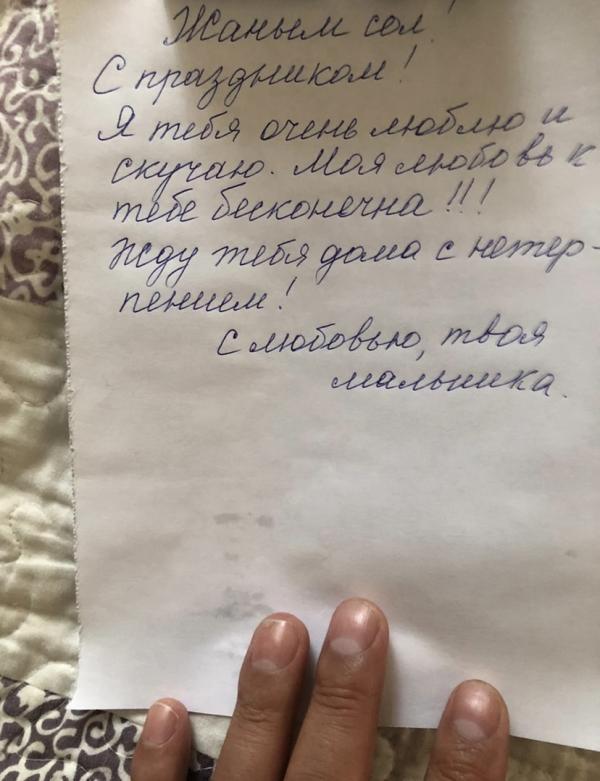 Жаным сол!
С праздником!
Я тебя очень люблю и
скучаю. Моя любовь к
тебе бесконечна!!!
Жду тебя дома с нетер-
пением!
С любовью, твоя
малышка.